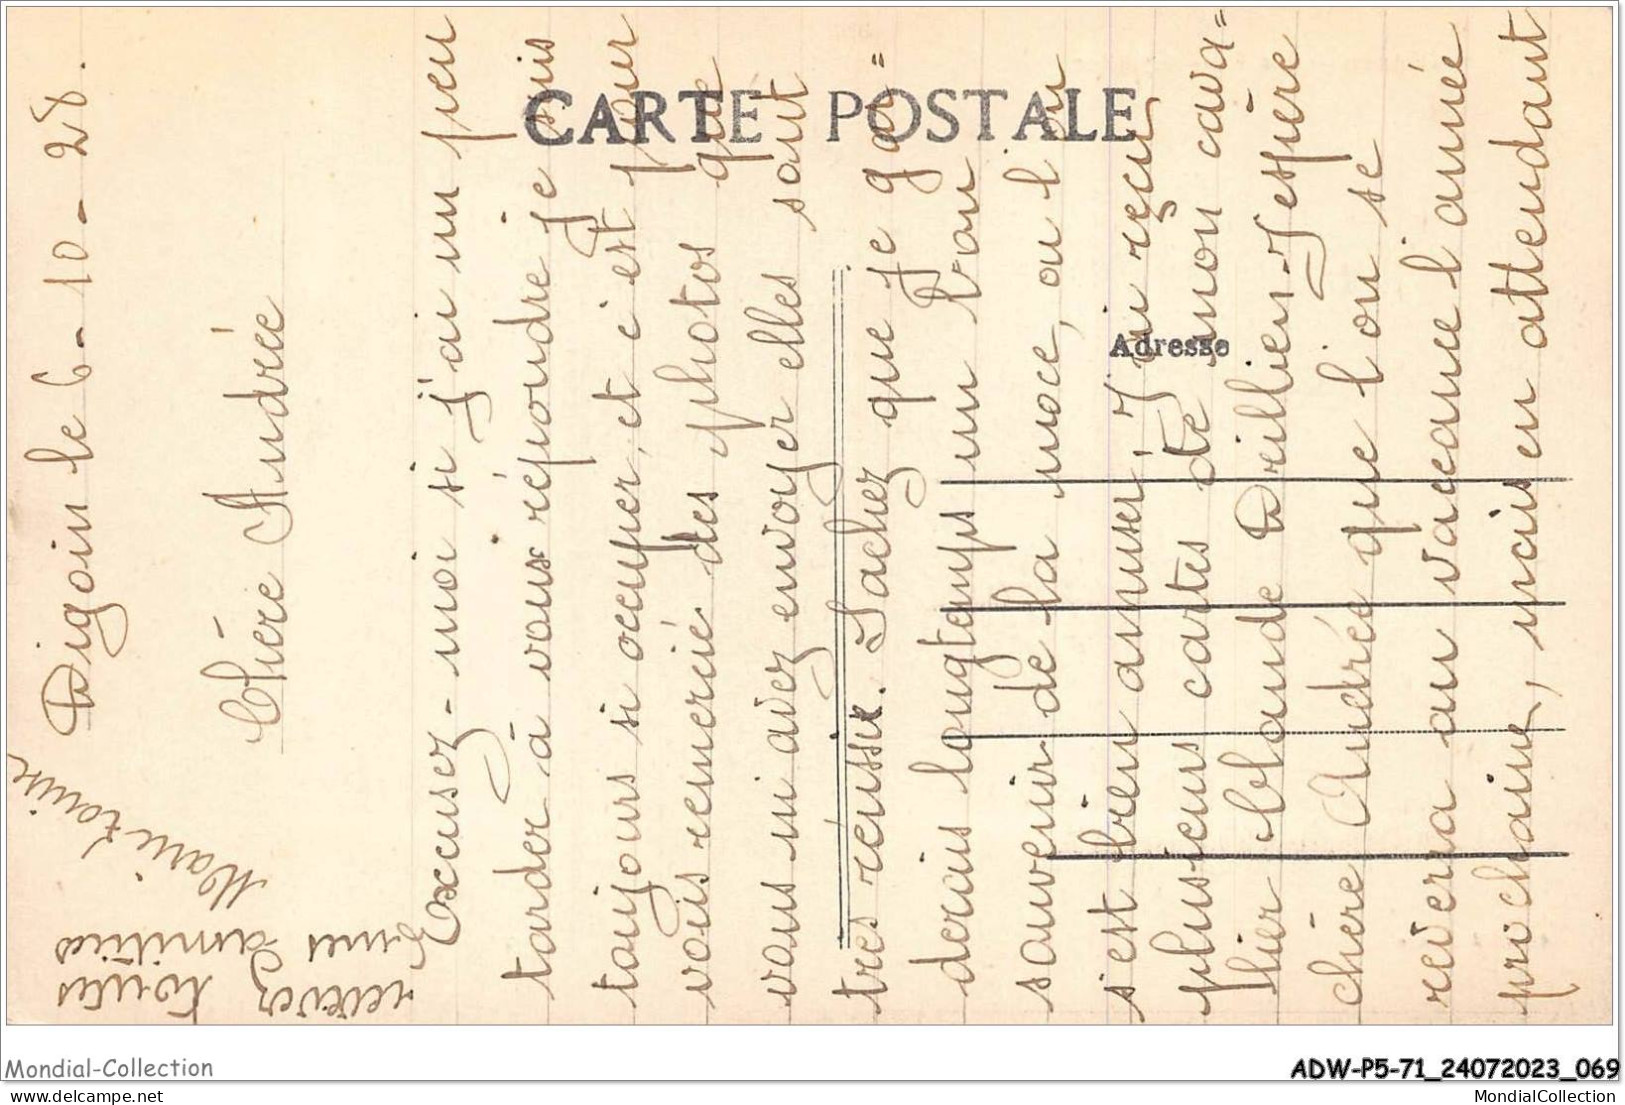 CARTE POSTALE
Adresse
Digoin le 6-10-28.
Chère Andrée
Excusez-moi si j'ai un peu
tarder à vous répondre je suis
toujours si occuper, et c'est pour
vois remercié des photos que
vous m'avez envoyer elles sont
tres réussie. Sachez que je gar=
derais longtemps un bon
souvenir de la noce, ou l'on
s'est bien amuser, J'ai reçu
plusieurs cartes de mon cava=
lier blonde Deillien. J'espère
chère Andrée que l'on se
reverra au vaceance l'année
prochaine, mais en attendant
recevez toutes
mes amitiés
Marie
Mondial-Collection
ADW-P5-71_24072023_069
delcampe.net
MondialCollection